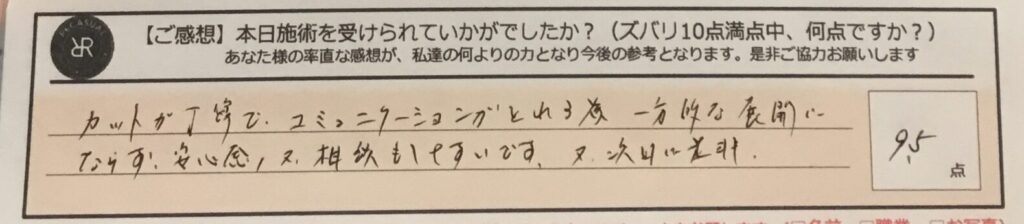 CASUAL
RR
【ご感想】本日施術を受けられていかがでしたか?(ズバリ10点満点中、何点ですか?)
あなた様の率直な感想が、私達の何よりの力となり今後の参考となります。是非ご協力お願いします
カットが丁寧で、コミュニケーションがとれる為 一方的な展開に
ならず、安心感、又、相談もしやすいです、又、次回に
9.5
点